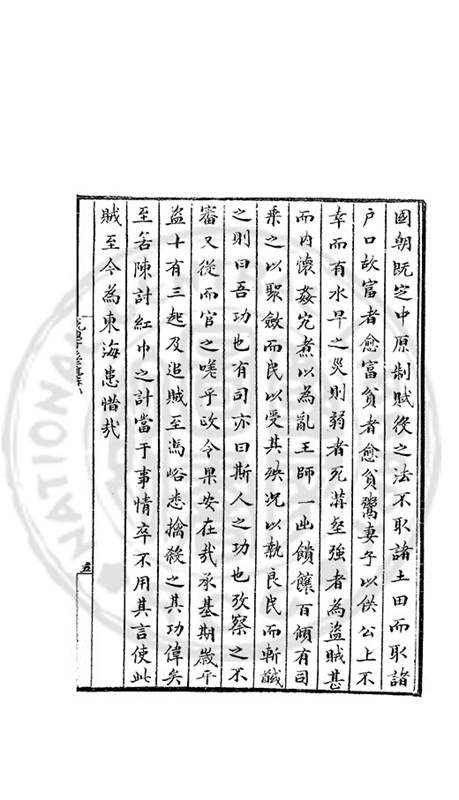 國朝既定中原制賦役之法不取諸土田而取諸
戶口故富者愈富貧者愈貧鬻妻子以供公上不
幸而有水旱之災則弱者死溝壑強者為盜賊甚
而内懷姦宄煮以為亂王師一出饋饟百傾有司
乘之以聚斂而民以受其殃况以執良民而斬馘
之則曰吾功也有司亦曰斯人之功也攷察之不
審又從而官之嗟乎政令果安在哉承基期嵗平
盗十有三起及追賊至馮峪悉擒殺之其功偉矣
至若陳討紅巾之計當于事情卒不用其言使此
賊至今為東海患惜哉
五
NATIONAL